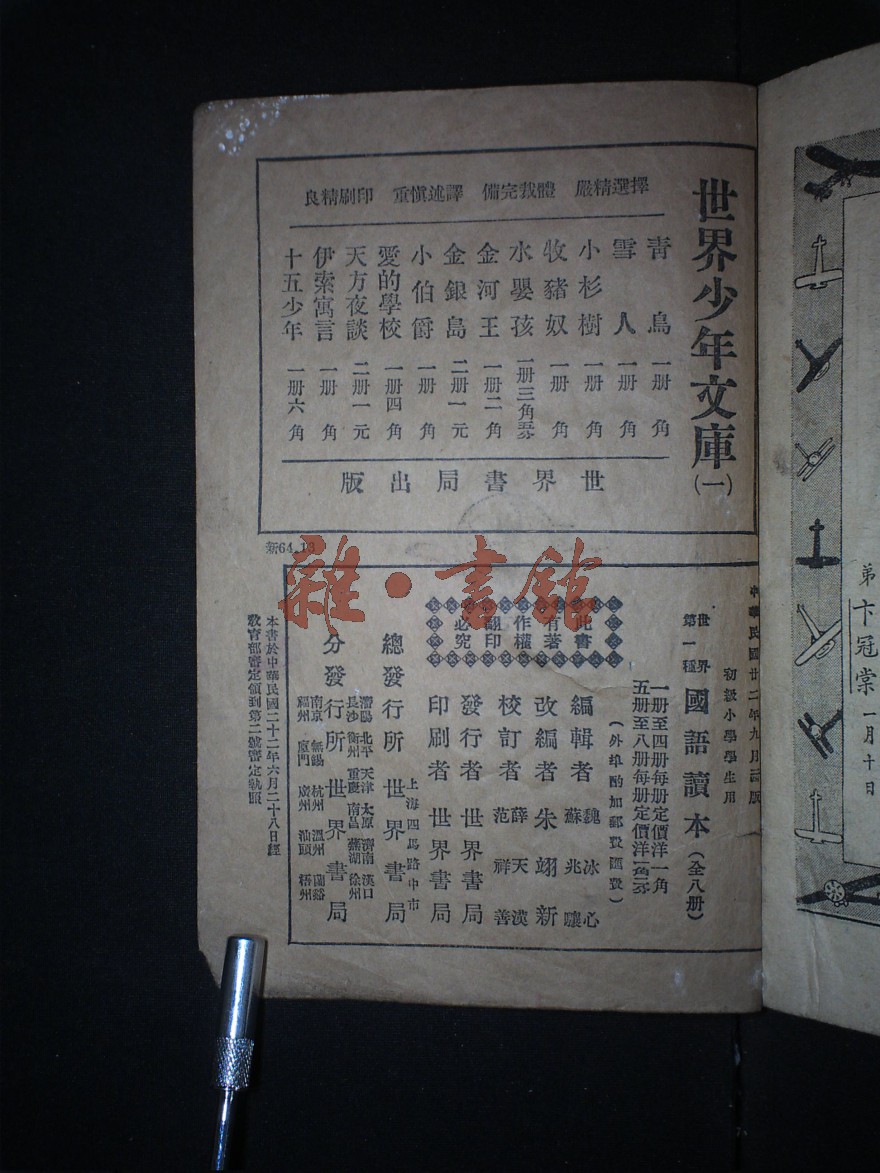 世界少年文庫(一)
選擇精嚴 體裁完備 譯述愼重 印刷精良
青鳥 一册 一角
雪人 一册 一角
小杉樹 一册 一角
牧豬奴 一册 一角
水嬰孩 一册三角五分
金河王 一册二角
金銀島 二册一元
小伯爵 一册 一角
愛的學校 一册四角
天方夜談 二册一元
伊索寓言 一册 一角
十五少年 一册六角
世界書局出版
新64,18
雜·書館
中華民國廿二年九月 版
初級小學學生用
世界第一種 國語讀本(全八册)
一册至四册每册定價洋一角
五册至八册每册定價洋一角二分
(外埠酌加郵費匯費)
此書有著作權翻印必究
編輯者 魏冰心 蘇兆驤
改編者 朱翊新
校訂者 薛天漢 范祥善
發行者 世界書局
印刷者 世界書局
上海四馬路中市
總發行所 世界書局
分發行所 世界書局
瀋陽 北平 天津 太原 濟南 漢口
長沙 衡州 重慶 南昌 蕪湖 徐州
南京 無錫 杭州 溫州 蘭谿
福州 廈門 廣州 汕頭 梧州
本書於中華民國二十二年六月二十八日經
敎育部審定領到第二號審定執照
弟卞冠棠 一月十日